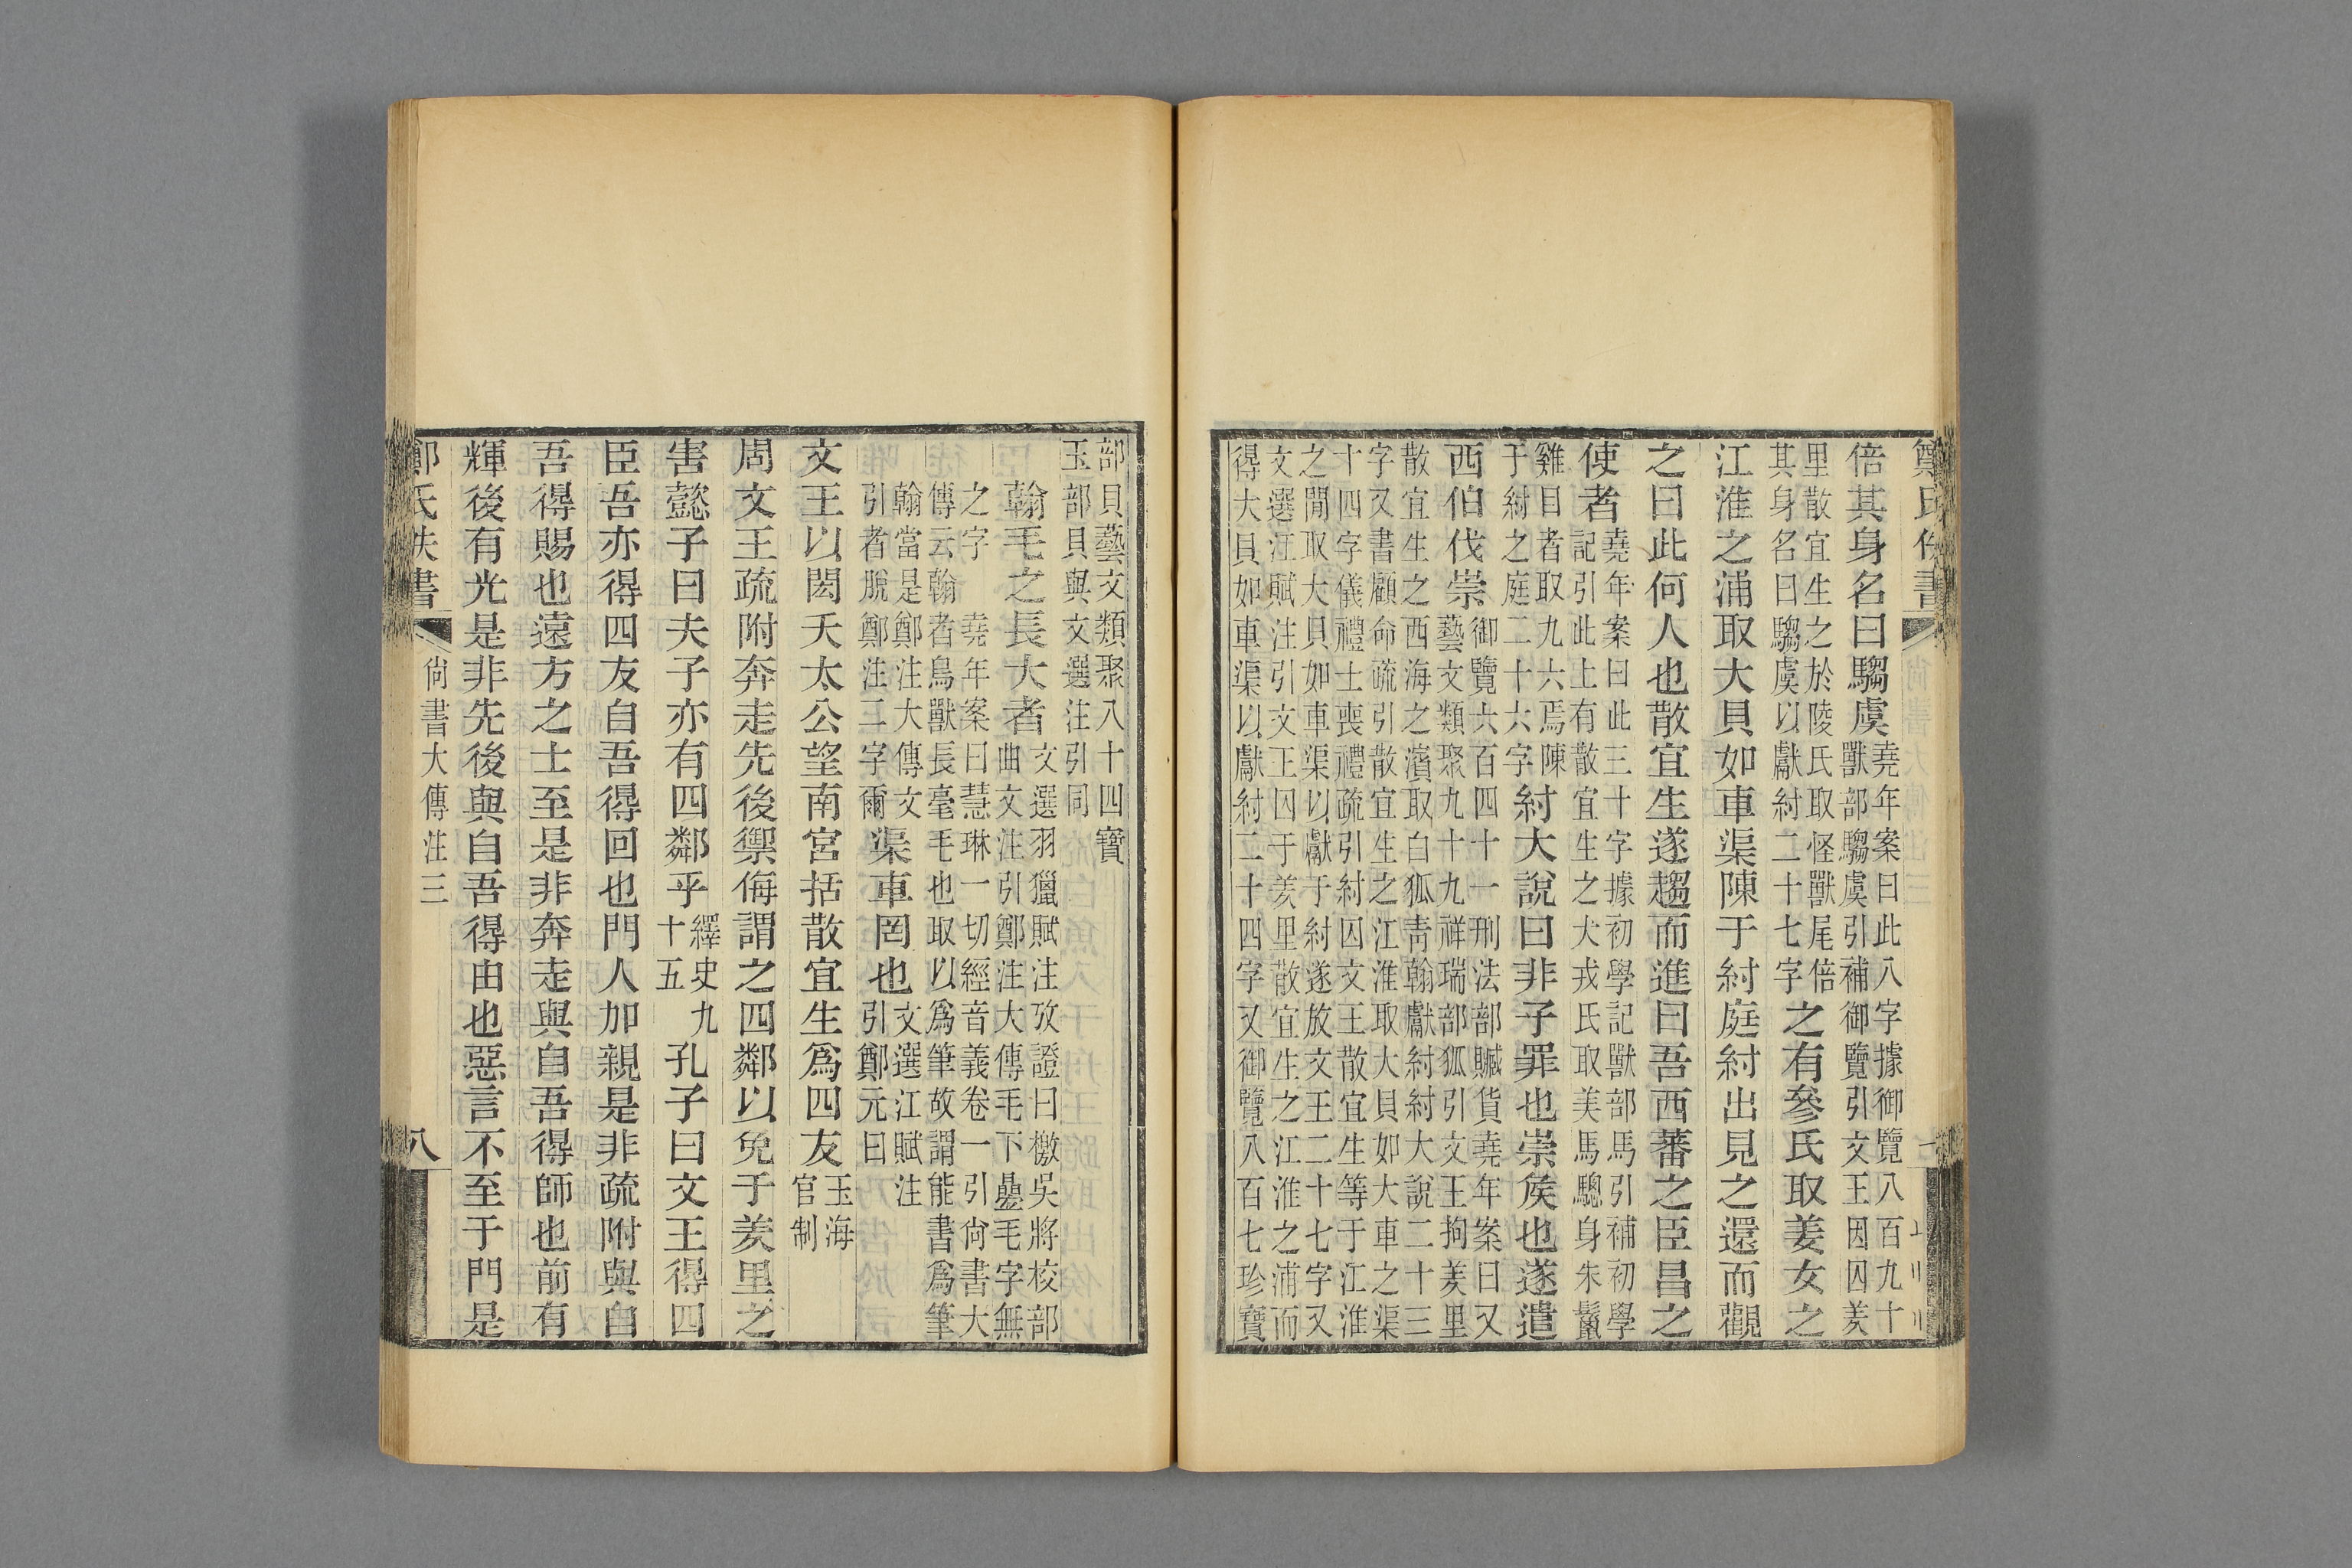 鄭氏佚書
倍其身名曰騶虞堯年案曰此八字據御覽八百九十
獸部騶虞引補御覽引文王因囚羑
里散宜生之於陵氏取怪獸尾倍
其身名曰騶虞以獻紂二十七字之有參氏取姜女之
江淮之浦取大貝如車渠陳于紂庭紂出見之還而觀
之曰此何人也散宜生遂趨而進曰吾西蕃之臣昌之
使者堯年案曰此三十字據初學記獸部馬引補初學
記引此上有散宜生之犬戎氏取美馬驄身朱鬣
雞目者取九六焉陳
于紂之庭二十六字紂大說曰非子罪也崇矦也遂遣
西伯伐崇御覽六百四十一刑法部贓貨堯年案曰又
藝文類聚九十九祥瑞部狐引文王拘羑里
散宜生之西海之濱取白狐青翰獻紂紂大說二十三
字又書顧命疏引散宜生之江淮取大貝如大車之渠
十四字儀禮士喪禮疏引紂囚文王散宜生等于江淮
之閒取大貝如車渠以獻于紂遂放文王二十七字又
文選江賦注引文王囚于羑里散宜生之江淮之浦而
得大貝如車渠以獻紂二十四字又御覽八百七珍寶
部貝藝文類聚八十四寶
玉部貝與文選注引同
翰毛之長大者文選羽獵賦注攷證曰檄吳將校部
曲文注引鄭注大傳毛下㬪毛字無
之字堯年案曰慧琳一切經音義卷一引尙書大
傳云翰者鳥獸長毫毛也取以爲筆故謂能書爲筆
翰當是鄭注大傳文
引者脫鄭注二字爾渠車罔也文選江賦注
引鄭元曰
文王以閎夭太公望南宮括散宜生爲四友玉海
官制
周文王疏附奔走先後禦侮謂之四鄰以免于羑里之
害懿子曰夫子亦有四鄰乎繹史九
十五孔子曰文王得四
臣吾亦得四友自吾得回也門人加親是非疏附與自
吾得賜也遠方之士至是非奔走與自吾得師也前有
輝後有光是非先後與自吾得由也惡言不至于門是
鄭氏佚書
尙書大傳注三
八